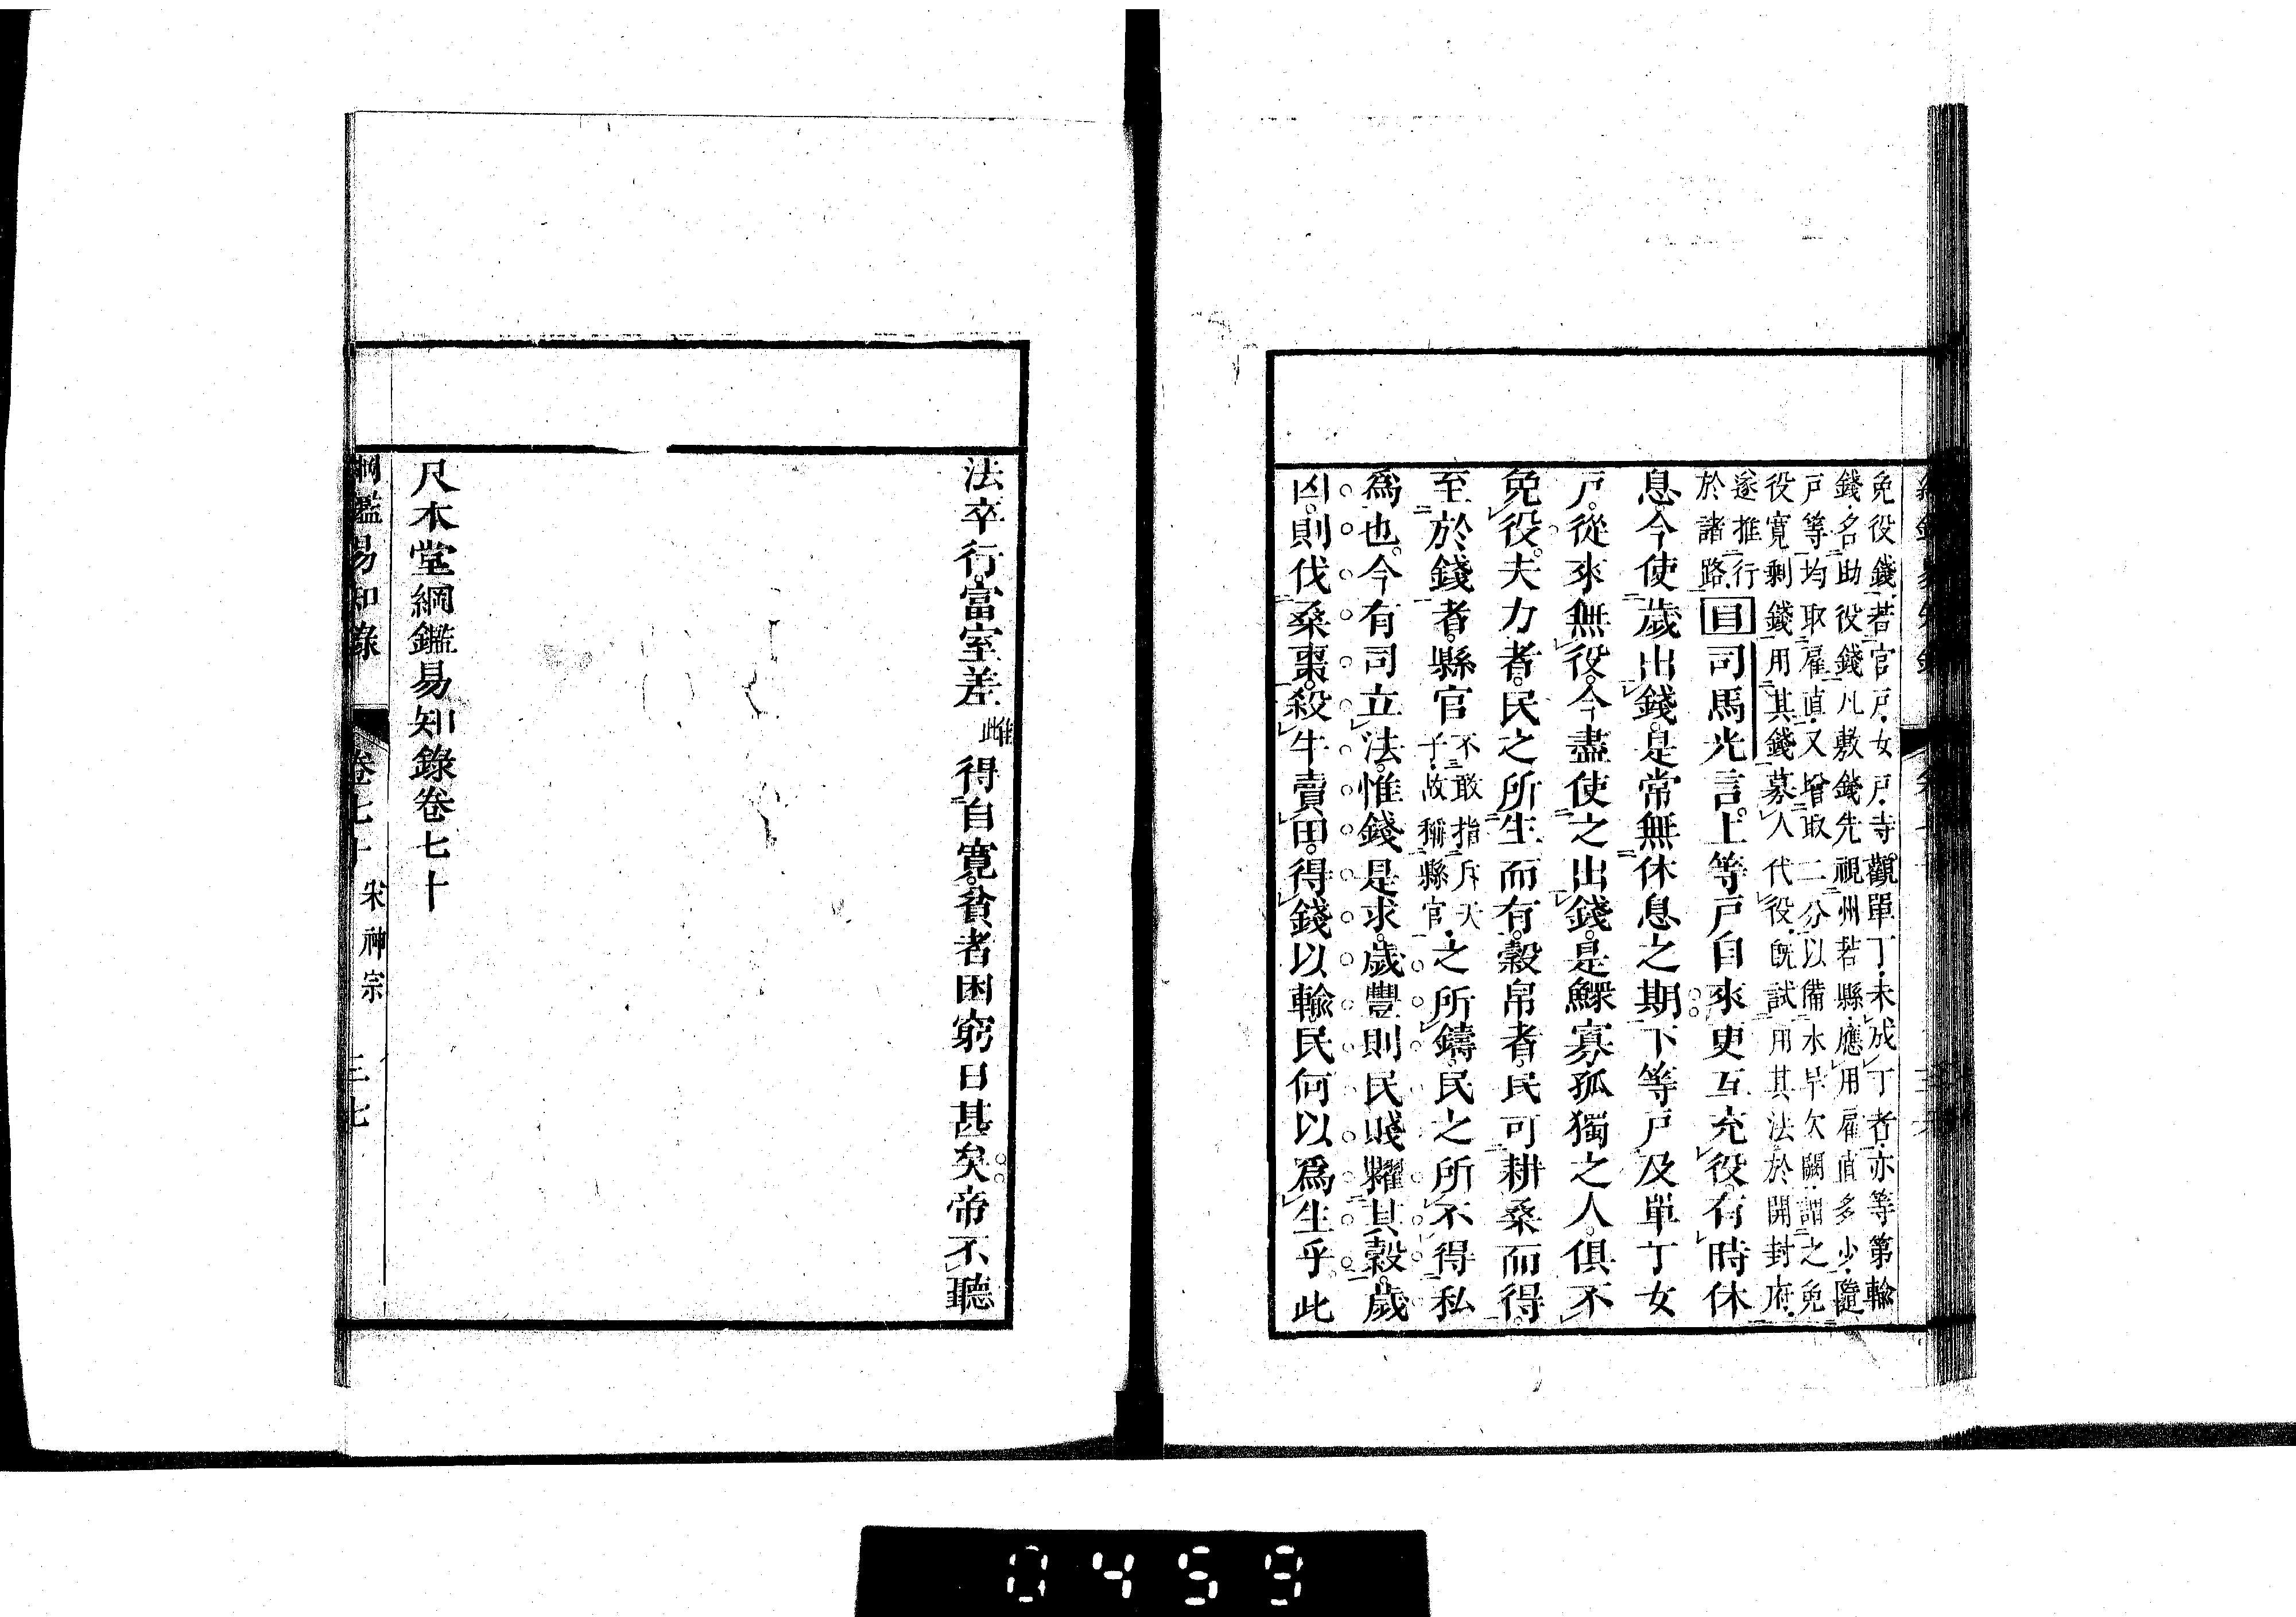 免役錢若官戶女戶寺觀單丁未成丁者亦等第輸
錢名助役錢凡敷錢先視州若縣應用雇值多少隨
戶等均取雇直又增取二分以備水旱欠闕謂之免
役寬剩錢用其錢募人代役既試用其法於開封府
遂推行
於諸路
目司馬光言上等戶自來更互充役有時休
息今使歲出錢是常無休息之期下等戶及單丁女
戶從來無役今盡使之出錢是鰥寡孤獨之人俱不
免役夫力者民之所生而有穀帛者民可耕桑而得
至於錢者縣官
不敢指斥天
子故稱縣官
之所鑄民之所不得私
爲也今有司立法惟錢是求歲豐則民賤糶其穀歲
凶則伐桑棗殺牛賣田得錢以輸民何以爲生乎此
法卒行富室差
雌
得自寬貧者困窮日甚矣帝不聽
尺木堂綱鑑易知錄卷七十
綱鑑易知錄
卷七十
宋神宗
三七
0459